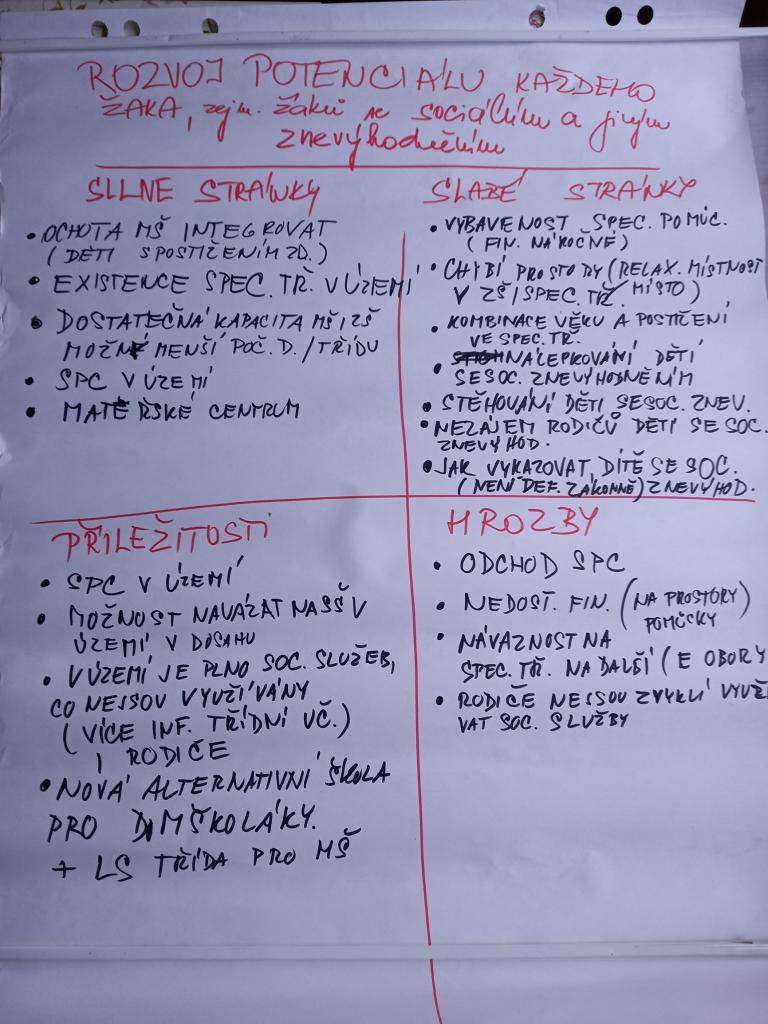 ROZVOJ POTENCIÁLU KAŽDÉHO
ŽÁKA, zejm. žáků se sociálním a jiným
znevýhodněním
SILNÉ STRÁNKY
• OCHOTA MŠ INTEGROVAT
(DĚTI S POSTIŽENÍM ZD.)
• EXISTENCE SPEC. TŘ. V ÚZEMÍ
• DOSTATEČNÁ KAPACITA MŠ I ZŠ
MOŽN MENŠÍ POČ. D. / TŘÍDU
• SPC V ÚZEMÍ
• MATEŘSKÉ CENTRUM
SLABÉ STRÁNKY
• VYBAVENOST SPEC. POMŮC.
(FIN. NÁROČNÉ)
• CHYBÍ PROSTORY (RELAX. MÍSTNOST
V ZŠ / SPEC. TŘ. MÍSTO)
• KOMBINACE VĚKU A POSTIŽENÍ
VE SPEC. TŘ.
• NÁLEPKOVÁNÍ DĚTÍ
SE SOC. ZNEVÝHODNĚNÍM
• STĚHOVÁNÍ DĚTÍ SE SOC. ZNEV.
• NEZÁJEM RODIČŮ DĚTÍ SE SOC.
ZNEVÝHOD.
• JAK VYKAZOVAT DÍTĚ SE SOC.
(NENÍ DEF. ZÁKONNĚ) ZNEVÝHOD.
PŘÍLEŽITOSTI
• SPC V ÚZEMÍ
• MOŽNOST NAVÁZAT NA SŠ V
ÚZEMÍ V DOSAHU
• V ÚZEMÍ JE PLNO SOC. SLUŽEB,
CO NEJSOU VYUŽÍVÁNY
(VÍCE INF. TŘÍDNÍ UČ.)
I RODIČE
• NOVÁ ALTERNATIVNÍ ŠKOLA
PRO DOMŠKOLÁKY.
+ LS TŘÍDA PRO MŠ
HROZBY
• ODCHOD SPC
• NEDOST. FIN. (NA PROSTORY)
POMŮCKY
• NÁVAZNOST NA
SPEC. TŘ. NA DALŠÍ (E OBORY
• RODIČE NEJSOU ZVYKLÍ VYUŽÍ
VAT SOC. SLUŽBY